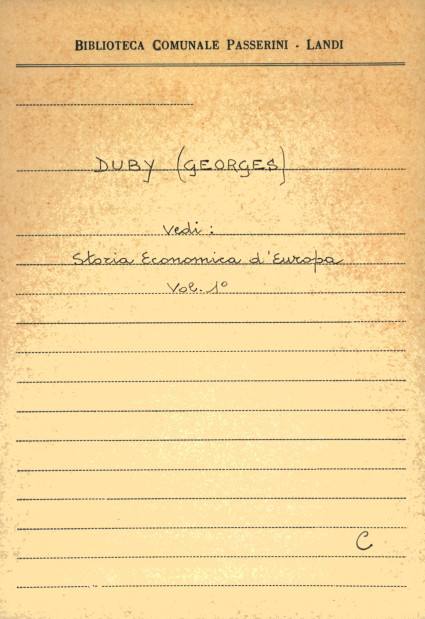 BIBLIOTECA COMUNALE PASSERINI - LANDI
DUBY (GEORGES)
Vedi :
Storia Economica d'Europa
Vol. 1°
C